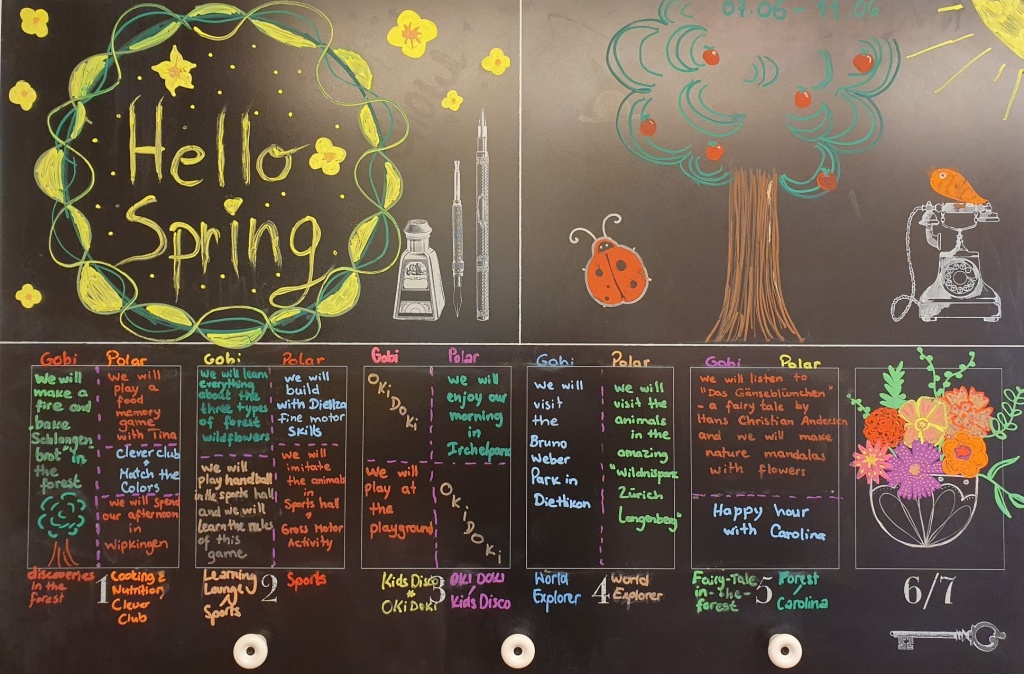 Hello
Spring
07.06 - 11.06
Gobi
Polar
We will
make a
fire and
bake
Schlangen
brot" in
the
forest
We will
play a
food
memory
game
with Tina
Clever club
Match the
Colors
we will spend
our afternoon
in
Wipkingen
Gobi
Polar
we will learn
everything
about the
three types
of forest
wildflowers
we will
play handball
in the sports hall
and we will
learn the rules
of this
game
we will
build
with Dieliza
fine motor
skills
we will
imitate
the animals
in
Sports hall
Gross Motor
Activity
Gobi
Polar
OKiDoKi
we will
play at
the
playground
we will
enjoy our
morning
in
Irchelpark
OKiDoKi
Gobi
Polar
we will
visit
the
Bruno
Weber
Park in
Dietikon
we will
visit the
animals
in the
amazing
"Wildnispark
Zürich
Langenberg"
Gobi
Polar
we will listen to
"Das Gänseblümchen"
- a fairy tale by
Hans Christian Andersen
and we will make
nature mandalas
with flowers
Happy hour
with Carolina
discoveries
in the
forest
1
Cooking &
Nutrition/
Clever
Club
Learning
Lounge/
Sports
2
Sports
Kids Disco
OKi DoKi
3
OKi DOKi
Kids Disco
World
Explorer
4
World
Explorer
Fairy-Tale
in-the-
forest
5
Forest
Carolina
6/7